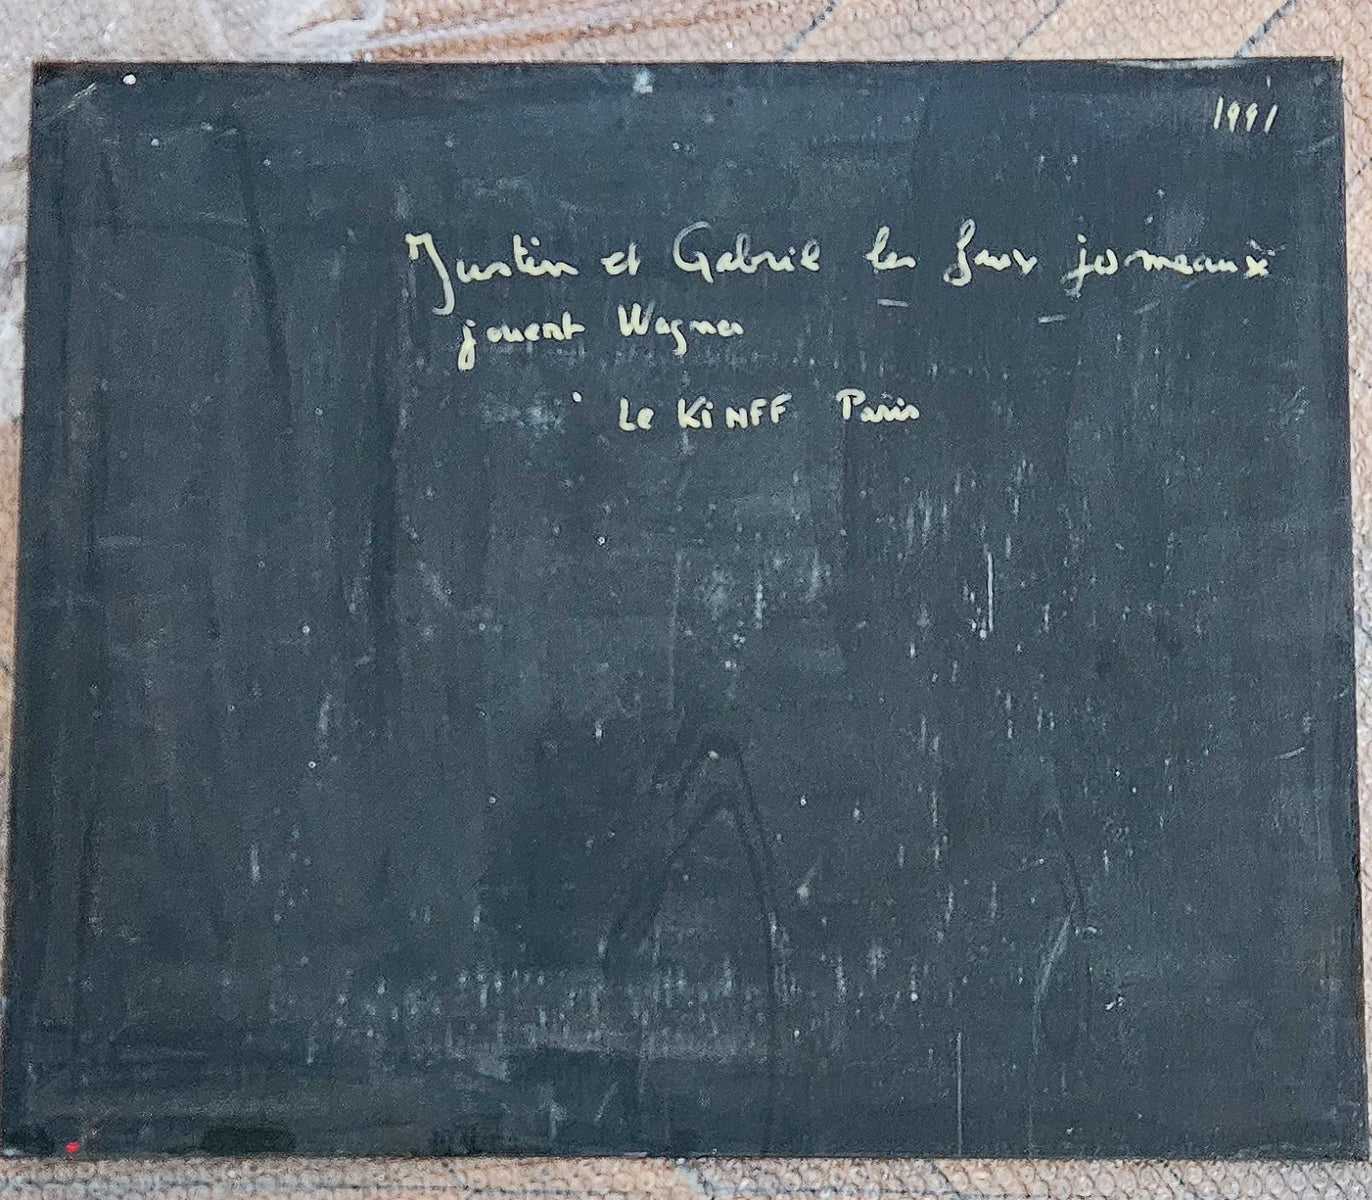 1991
Justin et Gabriel les faux jomeaux
jouent Wagner
Le KiNFF Paris